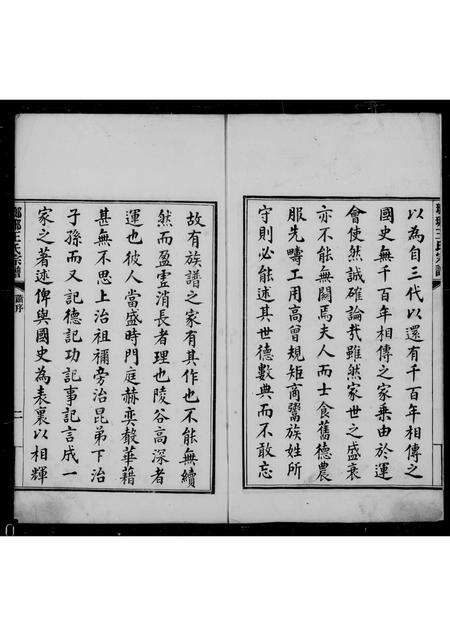 以為自三代以還有千百年相傳之
國史無千百年相傳之家乘由於運
會使然誠確論哉雖然家世之盛衰
亦不能無關焉夫人而士食舊德農
服先疇工用高曾規矩商鬻族姓所
守則必能述其世德數典而不敢忘
故有族譜之家有其作也不能無續
然而盈虛消長者理也陵谷高深者
運也彼人當盛時門庭赫奕轂華籍
甚無不思上治祖禰旁治昆弟下治
子孫而又記德記功記事記言成一
家之著述俾與國史為表裏以相輝
瑯琊王氏宗譜
譜序
二